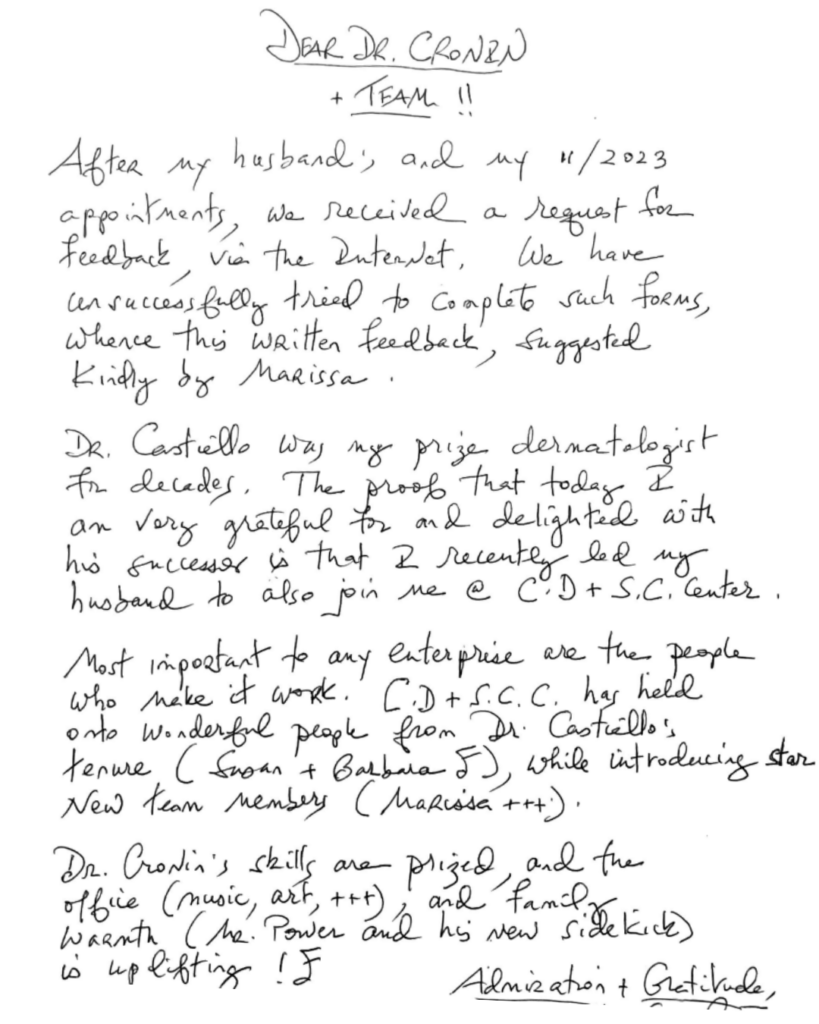 DEAR DR. CRONIN
+ TEAM !!
After my husband's and my 11/2023
appointments, we received a request for
feedback, via the InterNet. We have
unsuccessfully tried to complete such forms,
whence this written feedback, suggested
kindly by Marissa.
Dr. Castiello was my prize dermatologist
for decades. The proof that today I
am very grateful for and delighted with
his successor is that I recently led my
husband to also join me @ C.D + S.C. Center.
Most important to any enterprise are the people
who make it work. C.D + S.C.C. has held
onto wonderful people from Dr. Castiello's
tenure (Susan + Barbara F), while introducing star
New team members (Marissa +++).
Dr. Cronin's skills are prized, and the
office (music, art, +++), and family
warmth (Mr. Power and his new sidekick)
is uplifting !
Admiration + Gratitude,